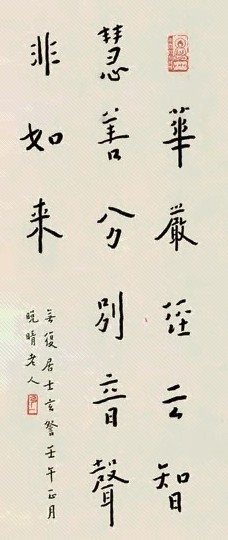 華嚴經云智
慧善分別音聲
非如来
無復居士玄詧壬午正月
晚晴老人